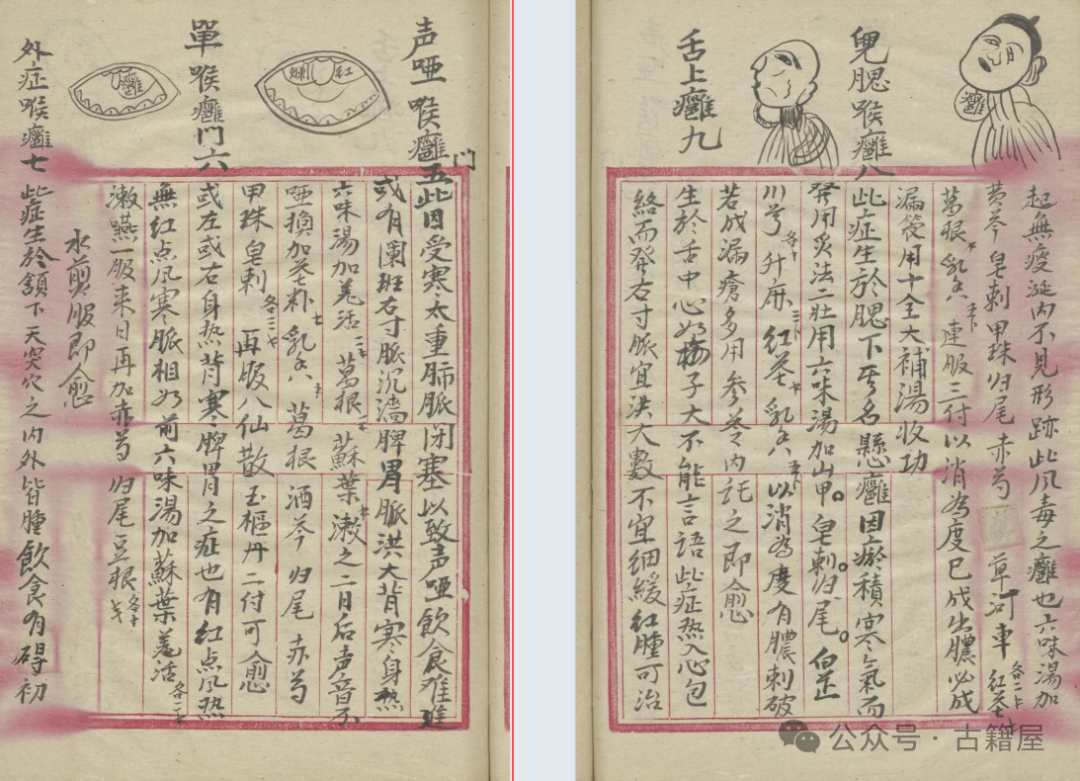 声哑喉癰門五此因受寒太重肺脈閉塞以致声哑飲食难進
紅
爛
或有闌斑右寸脈沉濇脾胃脈洪大背寒身热
六味湯加羌活 葛根 蘇葉漱之二日后声音不
哑換加芩朴 乳香 葛根 酒芩 归尾 赤芍
甲珠 皂刺 各三 再服八仙散玉樞丹二付可愈
單喉癰門六 或左或右身热背寒脾胃之症也有红点風热
癰
無红点風寒脈相如前六味湯加蘇葉羌活 各二
漱嚥一服来日再加赤芍 归尾 豆根 各
水煎服即愈
外症喉癰七 此症生於頷下天突穴之内外皆腫飲食有碍初
癰
起無痰涎内不見形跡此風毒之癰也六味湯加
黄芩 皂刺 甲珠 归尾 赤芍 草河車 各二 红花
葛根 乳香 連服三付以消為度已成出膿必成
漏後用十全大補湯收功
兒腮喉癰八 此症生於腮下又名懸癰因瘀積寒氣而
發用炙法二壯用六味湯加山甲。皂刺。归尾。白芷
川芎 升麻 红花 乳香 以消為度有膿刺破
若成漏瘡多用参芪之内托之即愈
舌上癰九 生於舌中心如梅子大不能言語此症热入心包
絡而發右寸脈宜洪大數不宜細緩红腫可治
公众号·古籍屋